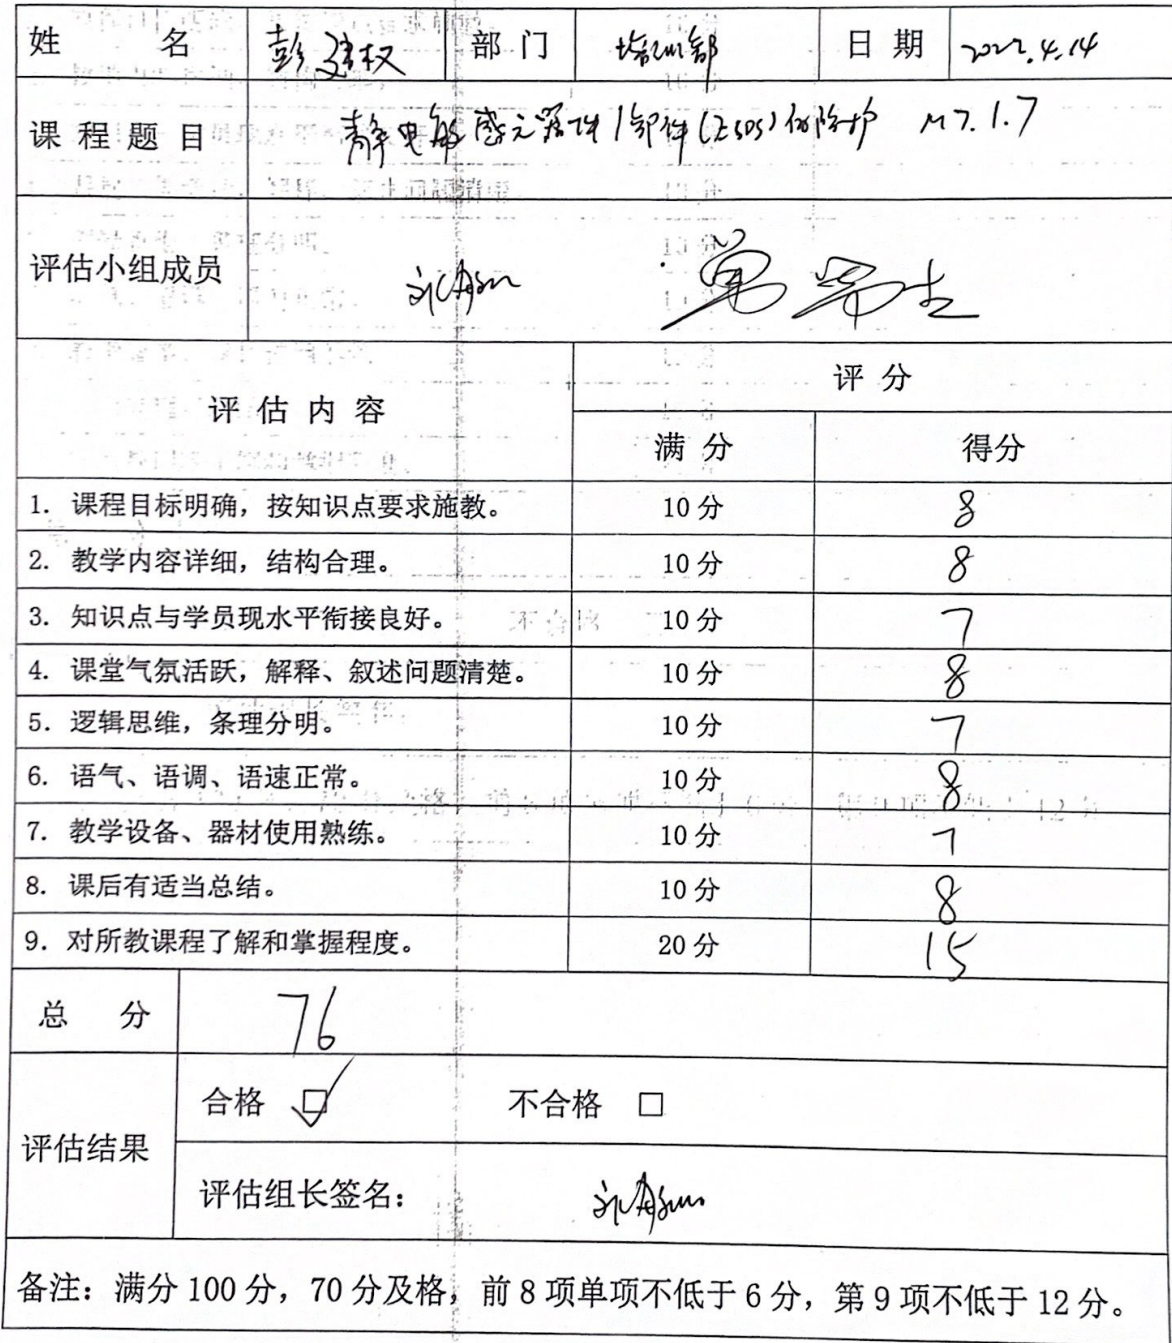 姓 名 彭建权 部 门 培训部 日 期 2022.4.14
课 程 题 目 静电敏感元器件/部件(ESDS)的防护 M7.1.7
评估小组成员
评 估 内 容 评 分
满 分 得分
1. 课程目标明确，按知识点要求施教。 10 分 8
2. 教学内容详细，结构合理。 10 分 8
3. 知识点与学员现水平衔接良好。 10 分 7
4. 课堂气氛活跃，解释、叙述问题清楚。 10 分 8
5. 逻辑思维，条理分明。 10 分 7
6. 语气、语调、语速正常。 10 分 8
7. 教学设备、器材使用熟练。 10 分 7
8. 课后有适当总结。 10 分 8
9. 对所教课程了解和掌握程度。 20 分 15
总 分 76
评估结果 合格 ☑ 不合格 □
评估组长签名：
备注：满分 100 分，70 分及格，前 8 项单项不低于 6 分，第 9 项不低于 12 分。